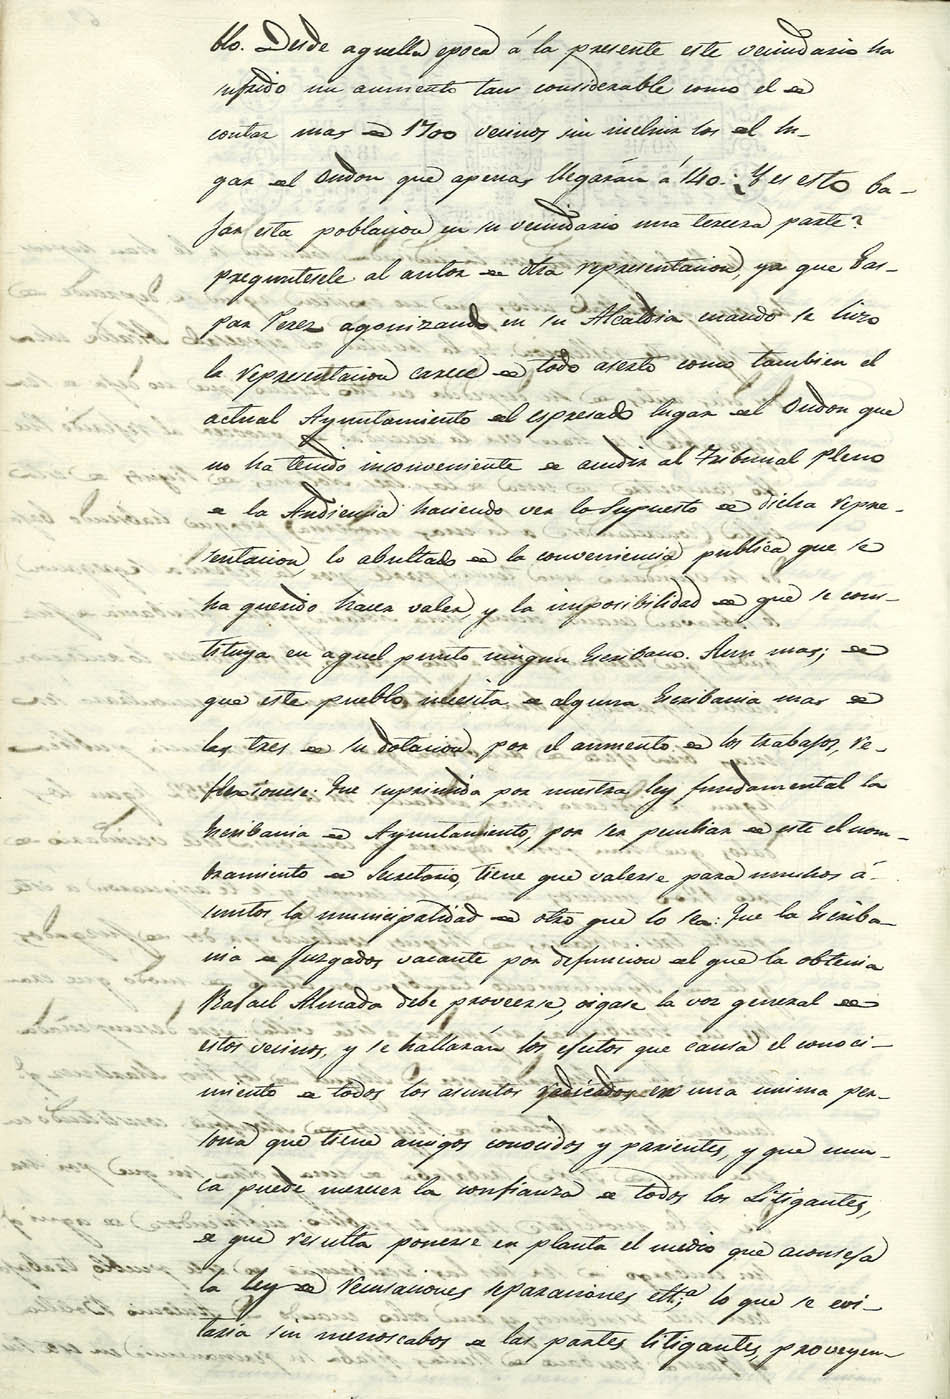 blo. Desde aquella epoca á la presente este vecindario ha
sufrido un aumento tan considerable como el de
contar mas de 1700 vecinos sin incluir los del lu-
gar del Ondon que apenas llegarán á 140: Y es esto ba-
jar esta poblacion en su vecindario una tercera parte?
preguntesele al autor de otra representacion, ya que Gas-
par Perez agonizando en su Alcaldia cuando se hizo
la representacion carece de todo aserto como tambien el
actual Ayuntamiento del espresado lugar del Ondon que
no ha tenido inconveniente de acudir al Tribunal Pleno
de la Audiencia haciendo ver lo supuesto de dicha repre-
sentacion, lo abultado de la conveniencia publica que se
ha querido hacer valer, y la imposibilidad de que se cons-
tituya en aquel punto ningun Escribano. Aun mas; de
que este pueblo necesita de alguna Escribania mas de
las tres de su dotacion, por el aumento de los trabajos, re-
flexionese: Fue suprimida por nuestra ley fundamental la
Escribania de Ayuntamiento, por ser peculiar de este el nom-
bramiento de Secretario, tiene que valerse para muchos á-
suntos la municipalidad de otro que lo sea: Que la Escriba-
nia de Juzgados vacante por defuncion del que la obtenia
Rafael Almada debe proveerse, oigase la voz general de
estos vecinos, y se hallarán los efectos que causa el conoci-
miento de todos los asuntos radicados en una misma per-
sona que tiene amigos conocidos y parientes, y que nun-
ca puede merecer la confianza de todos los Litigantes,
de que resulta ponerse en planta el medio que aconseja
la ley de recusaciones separaciones ett.ª; lo que se evi-
taria sin menoscabos de las partes litigantes, proveyen-